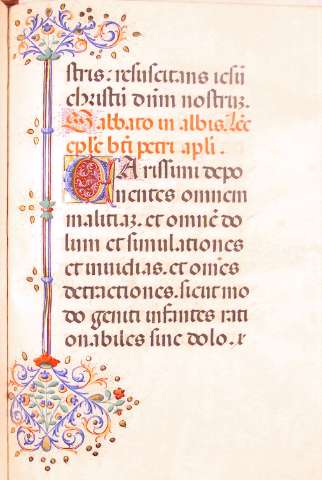 stris: resuscitans iesu
christu dnm nostruz.
Sabbato in albis. Lec
eplē bti petri apli.
Carissimi depo
nentes omnem
malitiaz. et omnē do
lum et simulationes
et inuidias. et omēs
detractiones. sicut mo
do geniti infantes rati
onabiles sine dolo. r